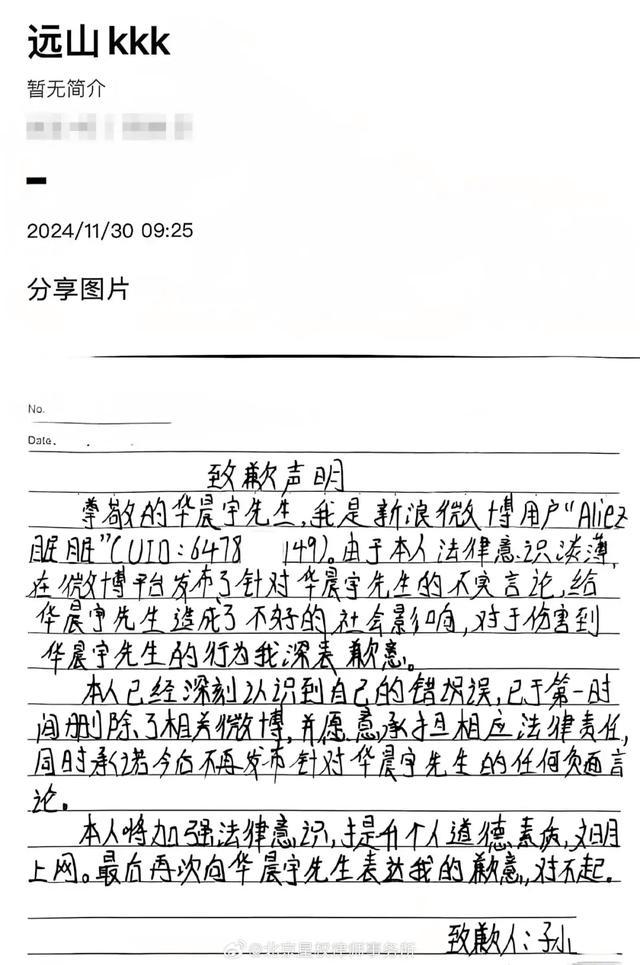 远山kkk
暂无简介
2024/11/30 09:25
分享图片
No.
Date.
致歉声明
尊敬的华晨宇先生,我是新浪微博用户"Aliez
眶眶"(UID:6478 149)。由于本人法律意识淡薄,
在微博平台发布了针对华晨宇先生的不实言论,给
华晨宇先生造成了不好的社会影响,对于伤害到
华晨宇先生的行为我深表歉意。
本人已经深刻认识到自己的错误,已于第一时
间删除了相关微博,并愿意承担相应法律责任,
同时承诺今后不再发布针对华晨宇先生的任何负面言
论。
本人将加强法律意识,提升个人道德素质,文明
上网。最后再次向华晨宇先生表达我的歉意,对不起。
致歉人:子小
@北京星权律师事务所